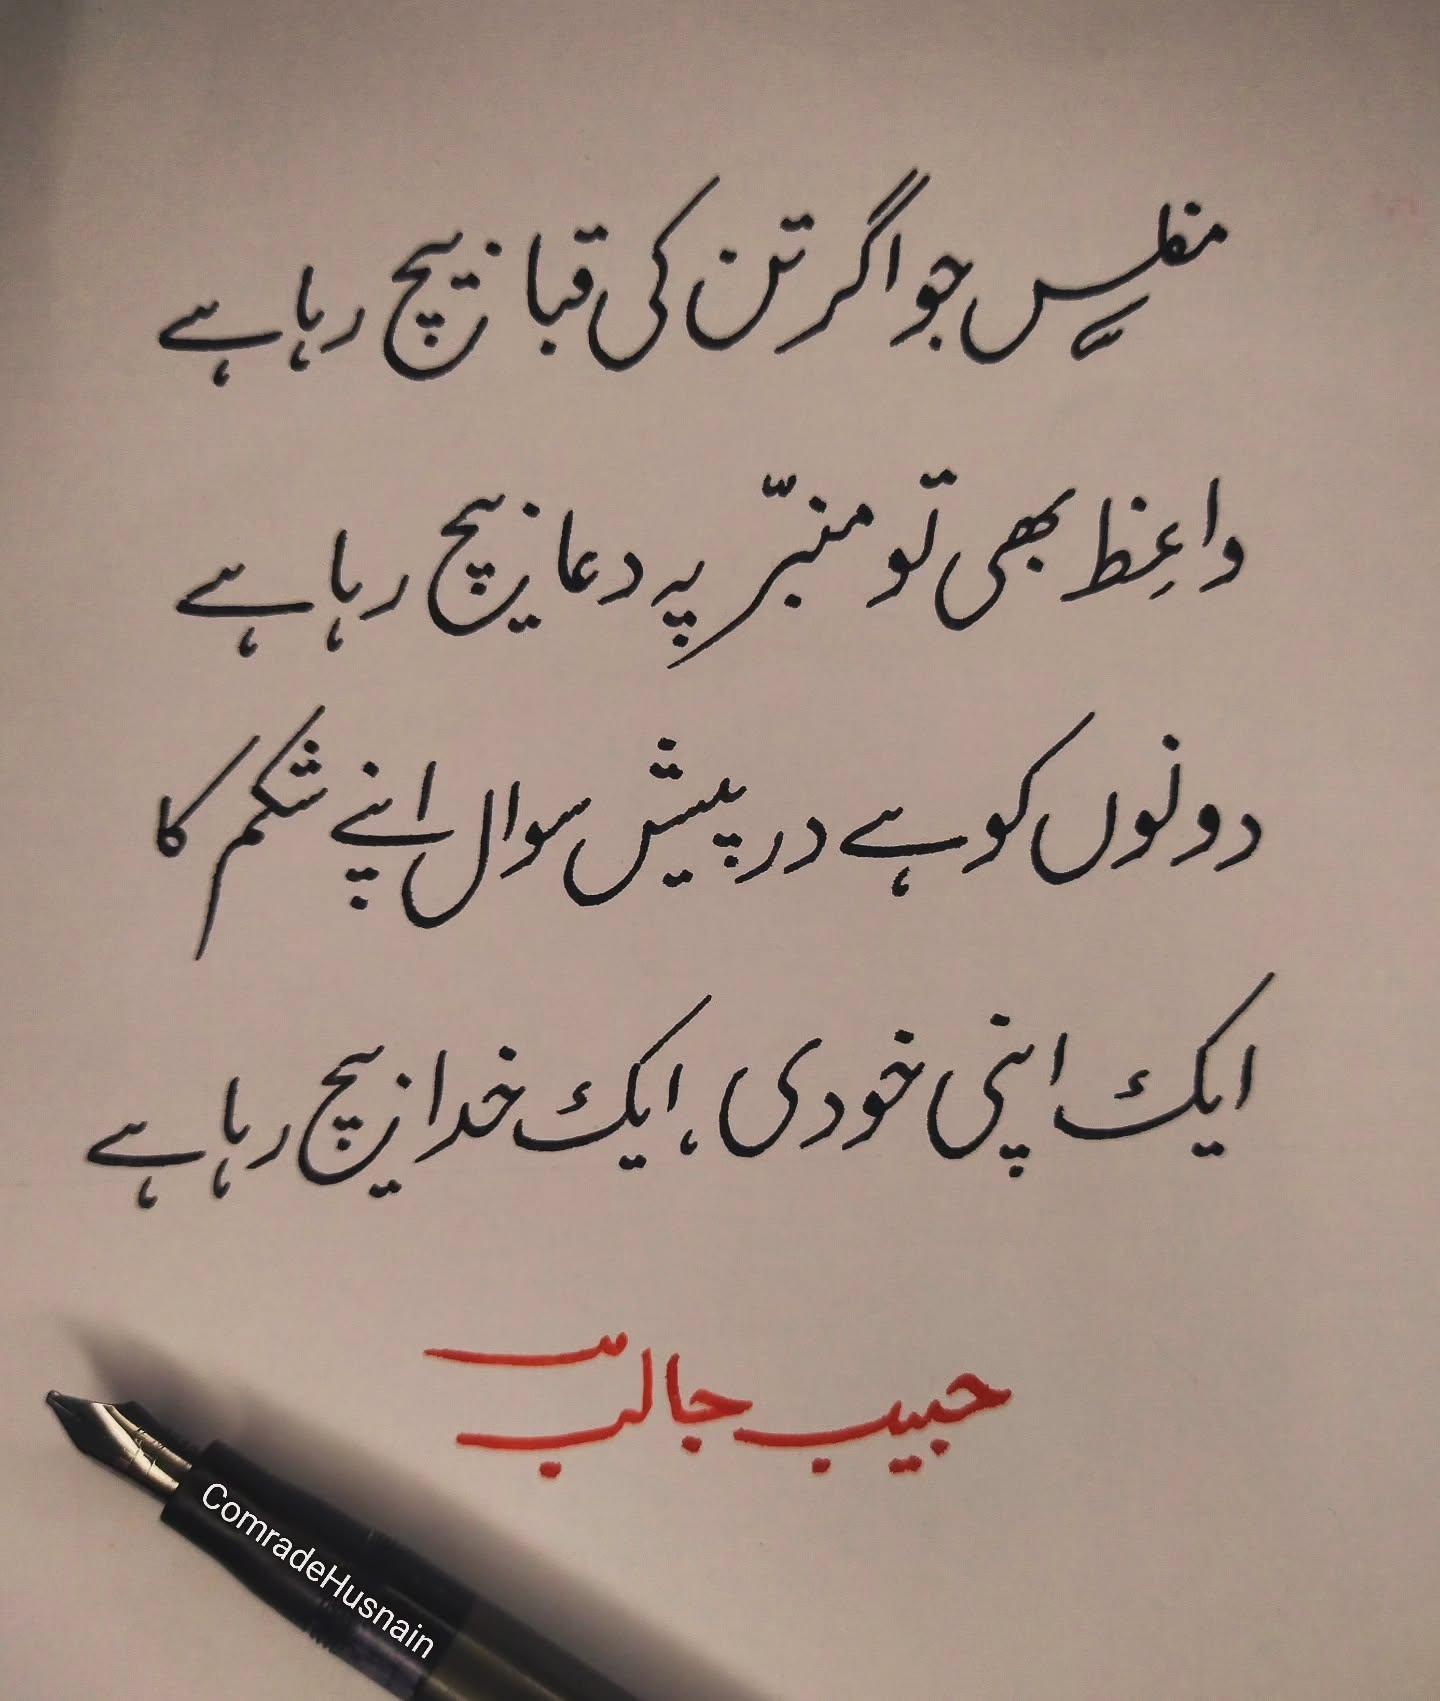 مفلس جو اگر تن کی قبا بیچ رہا ہے
واعظ بھی تو منبر پہ دعا بیچ رہا ہے
دونوں کو ہے درپیش سوال اپنے شکم کا
ایک اپنی خودی، ایک خدا بیچ رہا ہے
حبیب جالب
ComradeHusnain